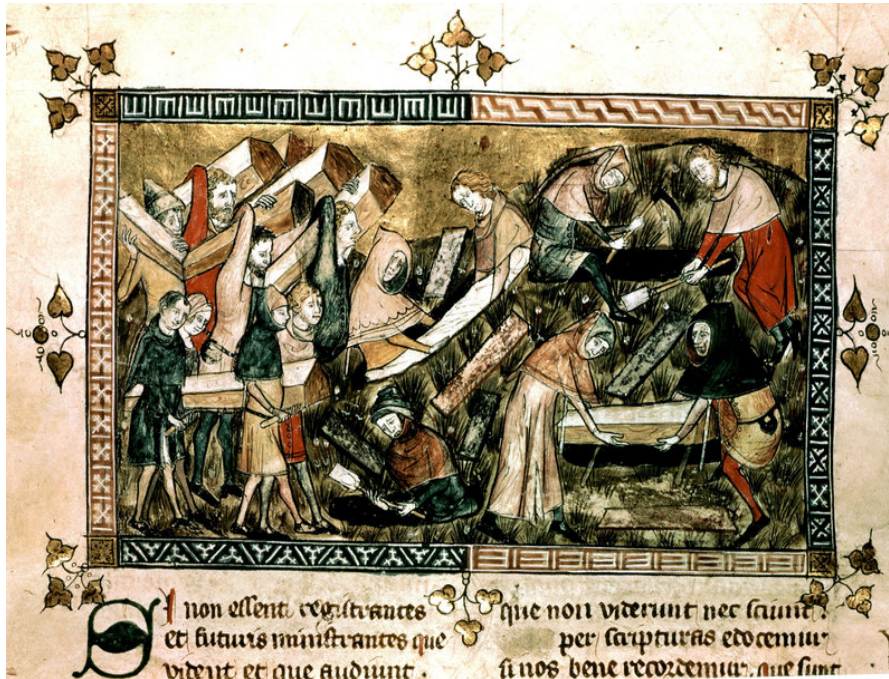 SI non essent registrantes
et futuris ministrantes que
vident et que audiunt .
que non viderunt nec sciunt .
per scripturas edocemur
si nos bene recordemur, que sunt